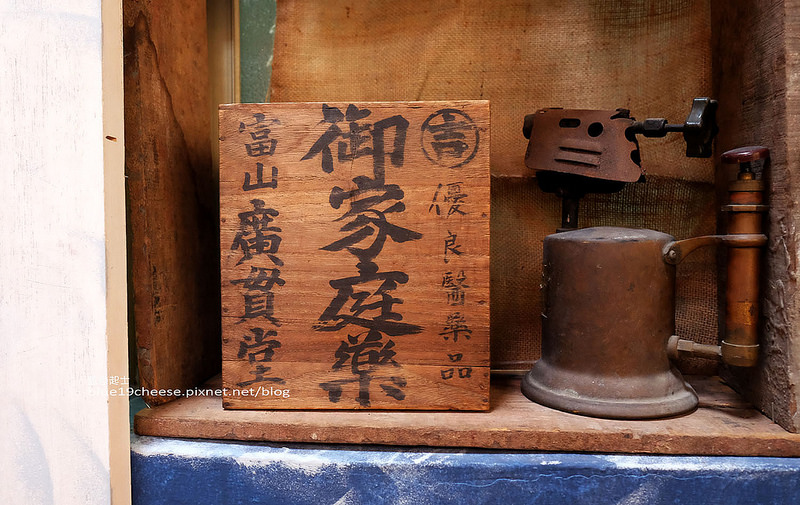 吉
優良醫藥品
御家庭藥
富山廣貫堂
19cheese.pixnet.net/blog